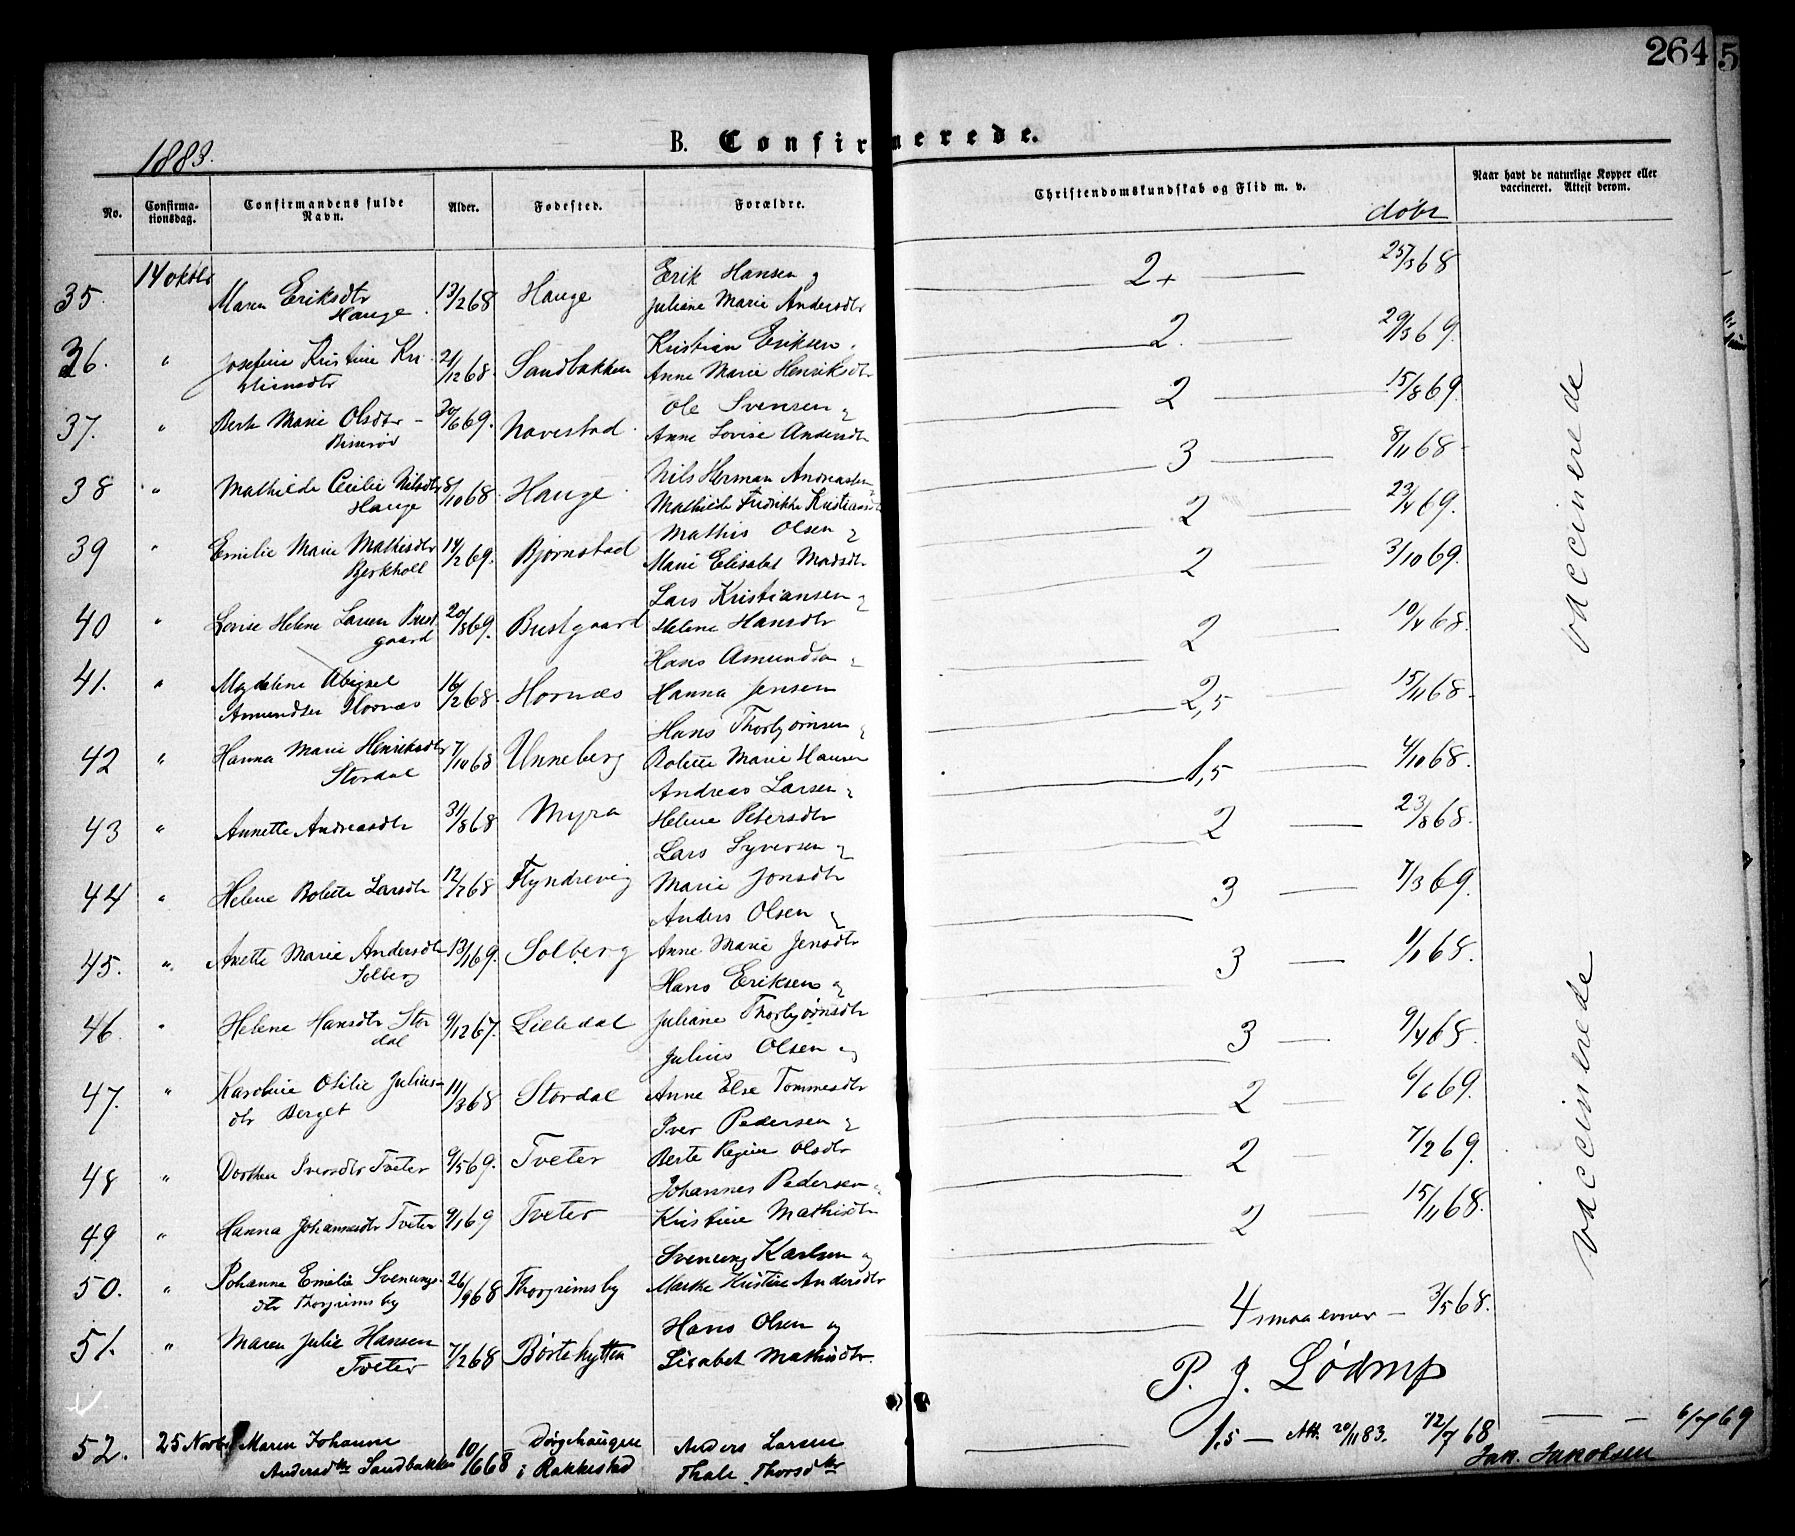 264
5
B. Confirmerede.
1883.
No.
Confirma-
tionsdag.
Confirmandens fulde
Navn.
Alder.
Fødested.
Forældre.
Christendomskundskab og Flid m. v.
døbt
Naar havt de naturlige Kopper eller
vaccineret. Attest derom.
35. 14 oktbr Maren Eriksdtr 13/2 68 Hauge Erik Hansen og 2+ 25/3 68
Hauge. Juliane Marie Andersdtr
36. " Josefine Kristine Kri 21/12 68. Sandbakken Kristian Eriksen 2. 29/3 69.
stiansdtr Anne Marie Henriksdtr
37. " Marie Olsdtr 20/6 69. Navestad. Ole Svensen og 2 15/8 69.
Anne Lovise Andersdtr
38 " Mathilde Cecilie Nilsdtr 8/10 68. Hauge. Nils Herman Andreasen 3 8/11 68
Hauge Mathilde Fredrikke Kristiansdtr
39 " Emilie Marie Mathisdtr 14/2 69. Bjørnstad Mathis Olsen og 2 23/4 69.
Berkholl Marie Elisabet Madsdtr
40 " Lovise Helene Larsen Bust 20/8 69. Bustgaard Lars Kristiansen og 2 3/10 69.
gaard Helene Hansdtr
41. " Magdelene Abigael 16/2 68. Hornæs Hans Amundsen 2 10/4 68.
Amundsen Hornæs Hanna Jensen
42 " Hanna Marie Henriksdtr 7/10 68 Unneberg Hans Thorbjørnsen 2,5 15/11 68
Stordal Bolette Marie Hansen
43 " Annette Andreasdtr 31/8 68 Myra Andreas Larsen og 1,5 4/10 68.
Helene Petersdtr
44 " Helene Bolette Larsdtr 12/7 68 Flyndrevig Lars Syversen og 2 23/8 68.
Marie Jonsdtr
45. " Anette Marie Andersdtr 13/1 69. Solberg Anders Olsen og 3 7/3 69.
Solberg Anne Marie Jensdtr
46. " Helene Hansdtr Stor 9/12 67. Lilledal Hans Eriksen og 3 1/1 68.
dal Juliane Thorbjørnsdtr
47. " Karoline Otilie Julius- 11/3 68 Stordal Julius Olsen og 3 9/4 68.
dtr Berget Anne Else Tommesdtr
48 " Dorthea Iversdtr Tveter 9/5 69. Tveter Iver Pedersen og 2 6/6 69.
Berte Regine Olsdtr
49 " Hanna Johannesdtr Tveter 9/1 69 Tveter Johannes Pedersen 2 7/2 69.
Kristine Mathisdtr
50. " Johanne Emilie Svenungs- 26/9 68 Thorgrimsby Svenung Karlsen og 2 15/11 68.
dtr Thorgrimsby Marthe Kristine Andersdtr
51. " Maren Julie Hansen 7/2 68 Børtehytten Hans Olsen og 4 smaa evner 3/5 68.
Tveter Lisabet Mathisdtr.
P. J. Lødrup
52. 25 Novbr Maren Johanne 10/6 68 Dørgehaugen Anders Larsen 1,5 — Att. 20/11 83. 12/7 68 — 6/7 69
Andersdtr Sandbakken i Rakkestad Thale Thorsdtr Jak. Jakobsen
vaccinerede
vaccinerede